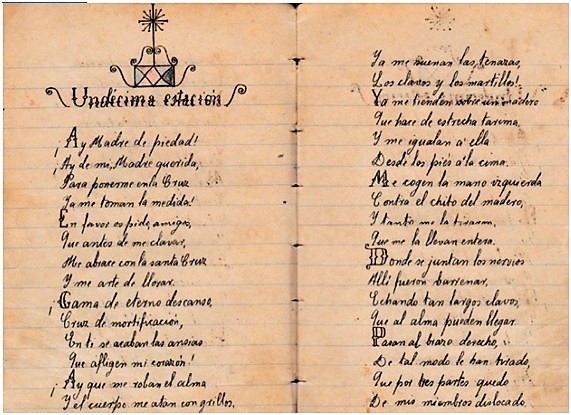 Undécima estación
¡Ay Madre de piedad!
¡Ay de mi, Madre querida,
Para ponerme en la Cruz
Ya me toman la medida!
En favor os pido, amigos,
Que antes de me clavar,
Me abrace con la santa Cruz
Y me arte de llorar.
¡Cama de eterno descanso,
Cruz de mortificación,
En ti se acaban las ansias
Que afligen mi corazón!
¡Ay que me roban el alma
Y el cuerpo me atan con grillos,
Ya me suenan las tenazas,
Los clavos y los martillos!
Ya me tienden sobre un madero
Que hace de estrecha tarima,
Y me igualan a ella
Desde los pies a la cima.
Me cogen la mano izquierda
Contra el chito del madero,
Y tanto me la tiraron,
Que me la llevan entera.
Donde se juntan los nervios
Alli fueron barrenar,
Echando tan largos clavos,
Que al alma pueden llegar.
Pasan al brazo derecho,
De tal modo le han tirado,
Que por tres partes quedo
De mis miembros dislocado.